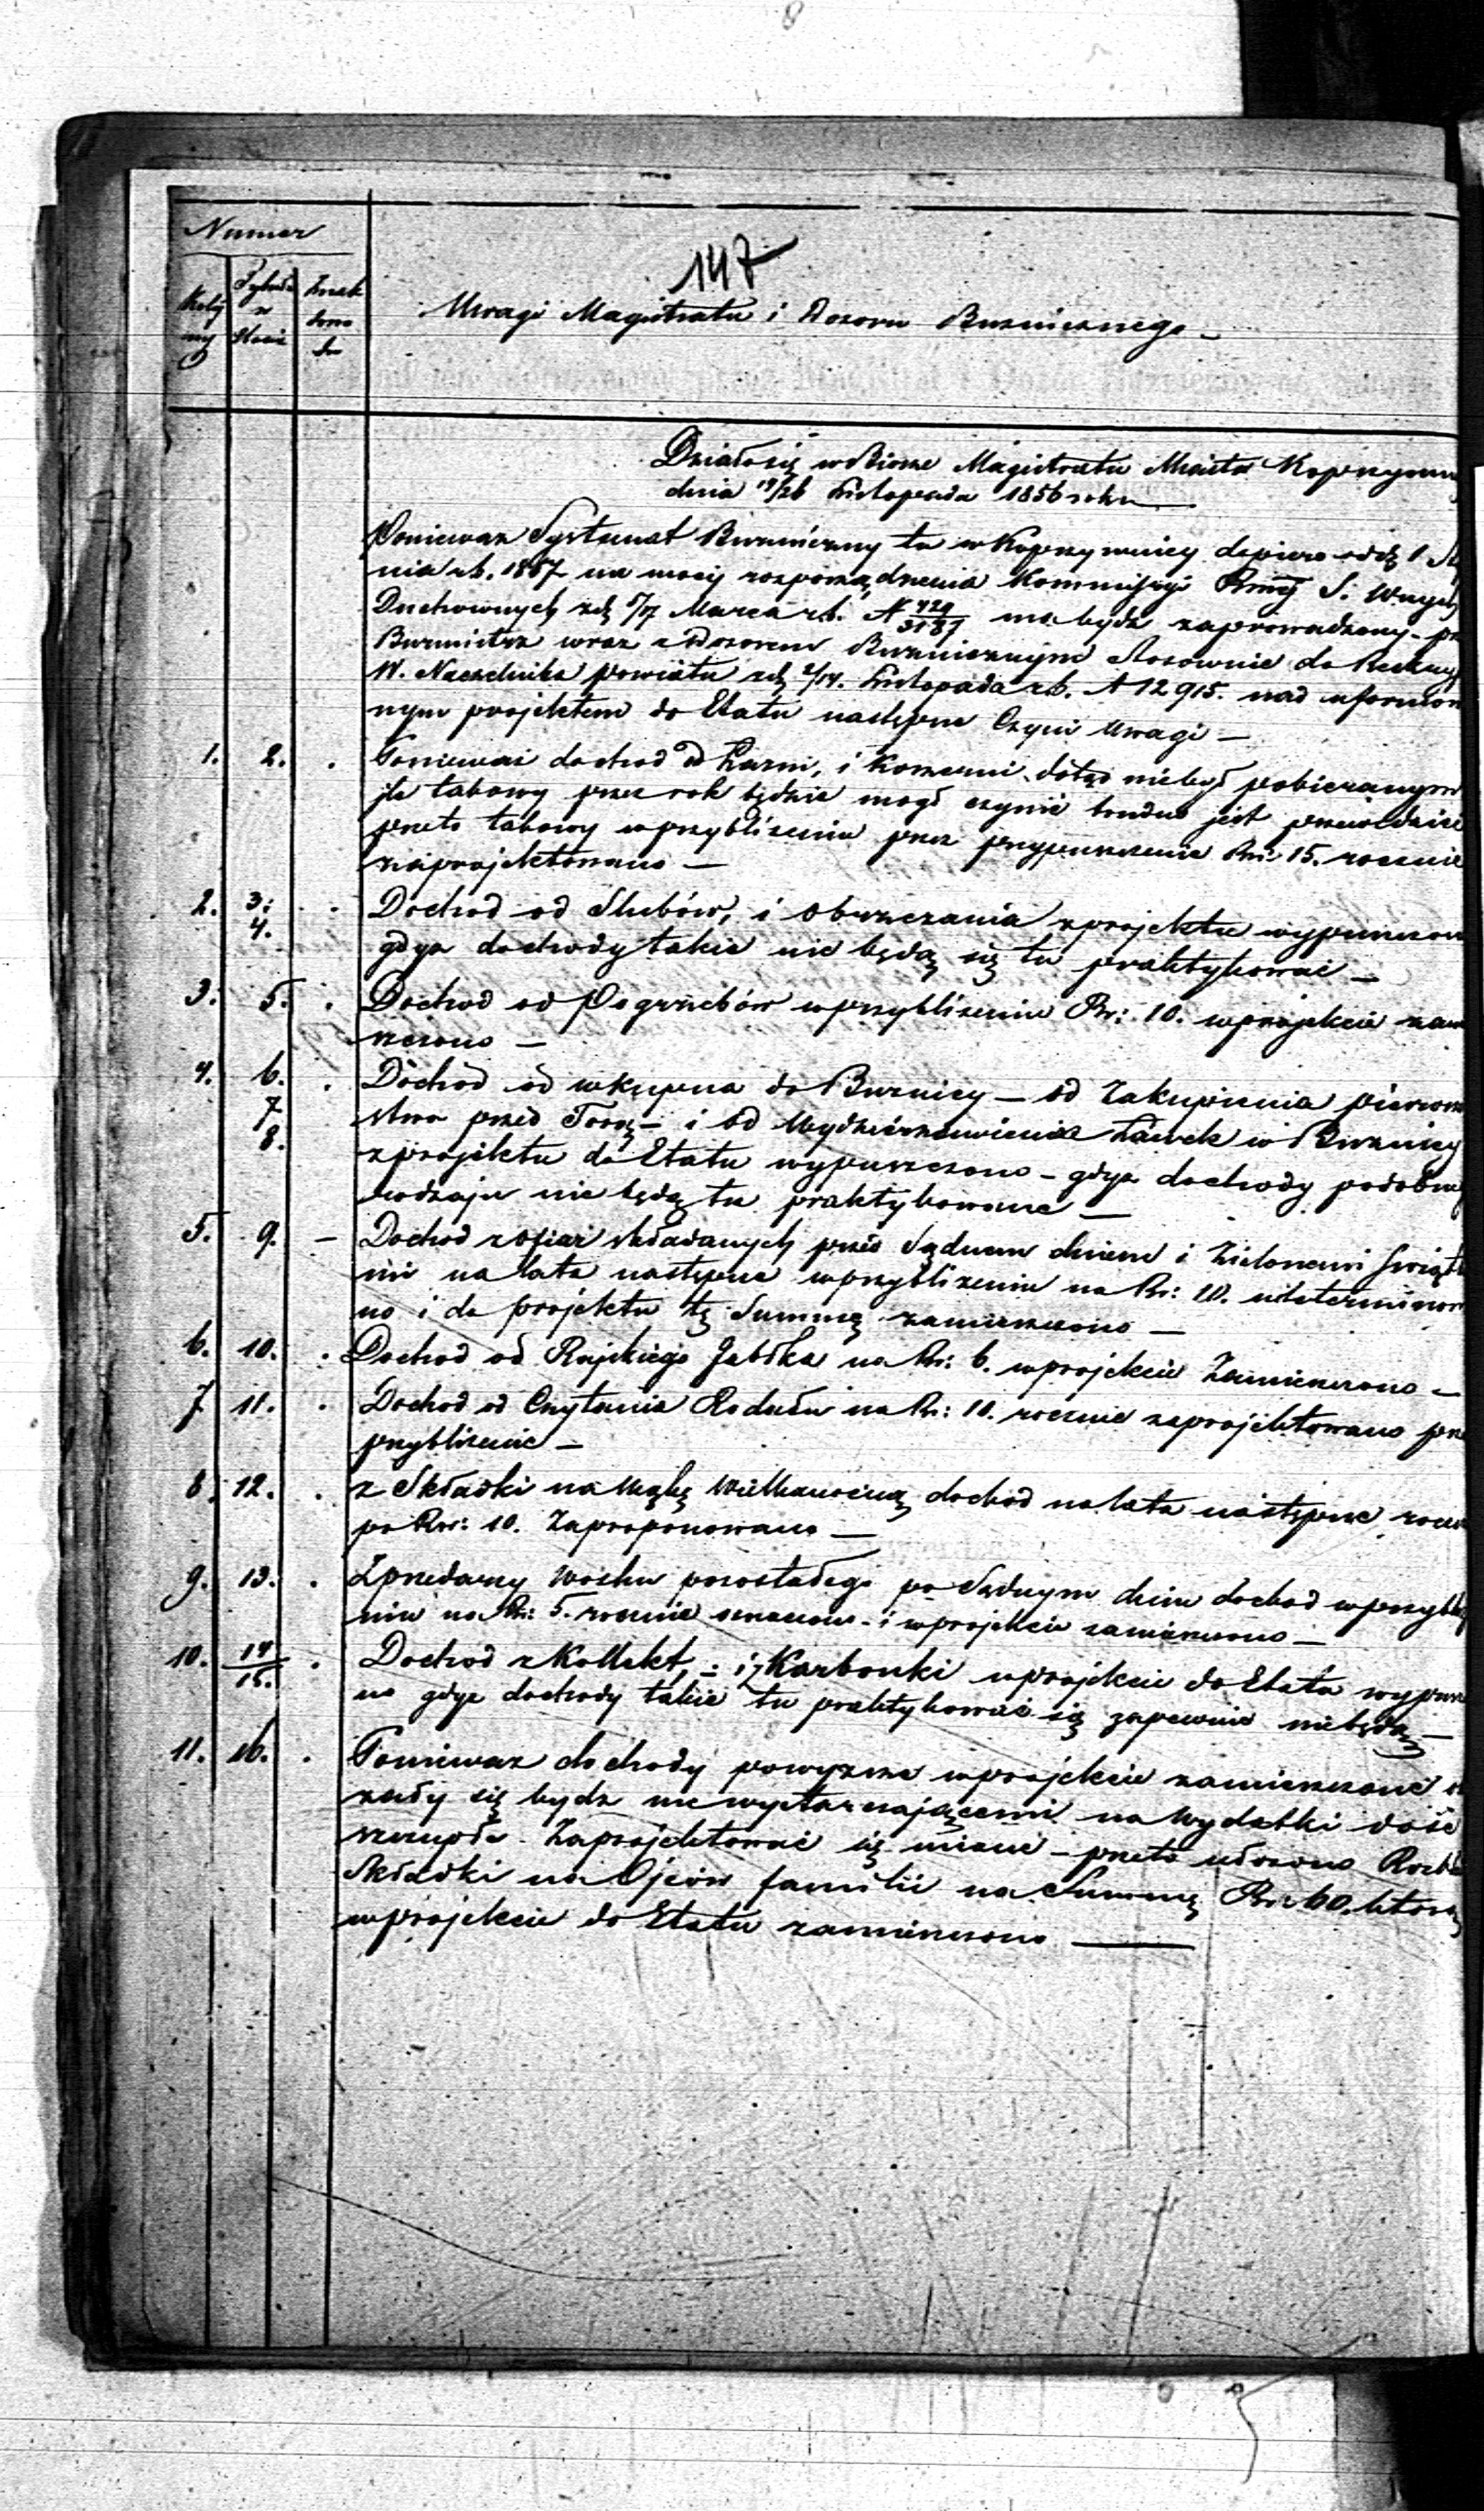 8
Numer
147
Uwagi Magistratu i Dozoru Buznicznego –
Działo się w Biorze Magistratu Miasta
dnia 14/26 Listopada 1856 roku
Poniewaz Systemat Buzniczny tu w Koprzywnicy dopiero od d. 1
nia r.b. 1857 na mocy rozporządzenia Kommissyi S. Wnych
Duchownych z d. 5/17 Marca r.b. N 729/3187 ma bydz zaprowadzony –
Burmistrz wraz z Dozorem Buzniczným Stosownie do
W. Naczelnika powiatu z d. 2/14. Listopada r.b. N 12915. nad
nym projektem do Etatu następne Czyni Uwagi –
1. 2. . Poniewaz dochod od Łazni, i dotąd niebył pobieranym
jle takowy przez rok będzie mogł czynić trudno jest
przeto takowy w przyblizeniu przez przypuszczenie Rs: 15. rocznie
zaprojektowano –
2. 3: 4. . Dochod od Slubów, i Obrzezania z projektu
gdyz dochody takie nie będą się tu praktykować –
3. 5. . Dochod od Pogrzebów w przyblizeniu Rs: 10. w projekcie
szczono –
4. 6. 7 8. . Dochod od wkupna do Buznicy – od Zakupienia
stwa przed Torą – i od Wydzierzawienia Ławek w Buznicy
z projektu do Etatu wypuszczono – gdyz dochody
rodzaju nie będą tu praktykowane –
5. 9. – Dochod z ofiar składanych przed Sądnem dniem i Zielonemi
mi na lata następne w przyblizeniu na Rs: 10.
no i do projektu tę Summę zamieszczono –
6. 10. . Dochod od Rajskiego Jabłka na Rs: 6. w projekcie Zamieszczono –
7 11. . Dochod od Czytania Rodału na Rs: 10. rocznie zaprojektowano
przyblizenie –
8. 12. . z Składki na Mąkę Wielkanocną dochod na lata następne
po Rs: 10. Zaproponowano –
9. 13. . Z przedarzy Wosku pozostałego po Sądnym dniu dochod
niu na Rs: 5. rocznie oznaczono – i w projekcie zamieszczono –
10. 14/15. . Dochod z Kollekt, – i z Karbonki w projekcie do Etatu
no gdyz dochody takie tu praktykować się zapewnie niebędą –
11. 16. . Poniewaz dochody powyzsze w projekcie zamieszczone
zały się bydz niewystarczającemi na wydatki dość
szczupło Zaprojektować się – przeto ułozono
Składki na Ojców familii na Summę Rs: 60. którą
w projekcie do Etatu zamieszczono –